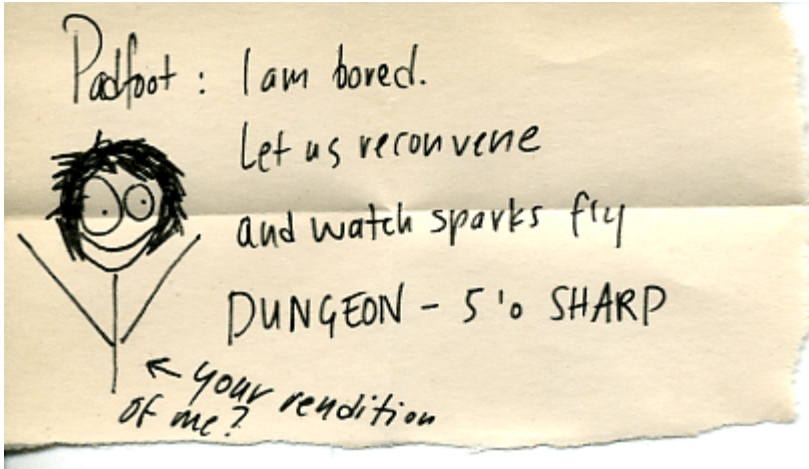 Padfoot : I am bored.
Let us reconvene
and watch sparks fly
DUNGEON - 5'o SHARP
← your rendition
of me?